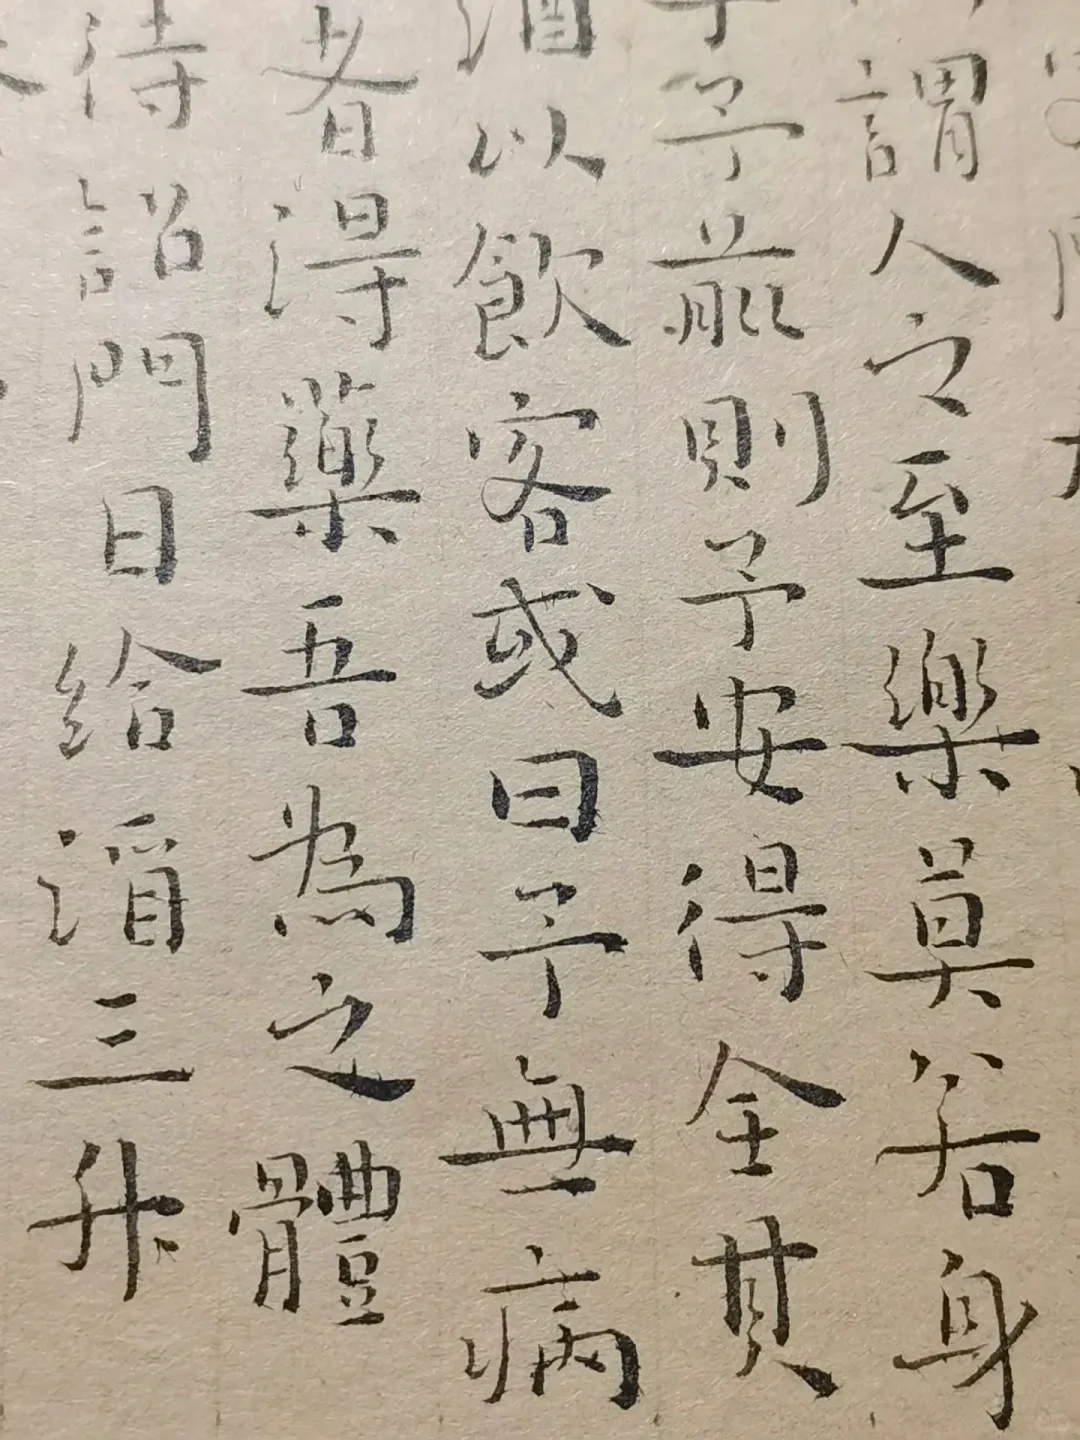 謂人之至樂莫若身
予前則予安得全其
酒以飲客或曰子無病
者得藥吾為之體
待詔門日給酒三升